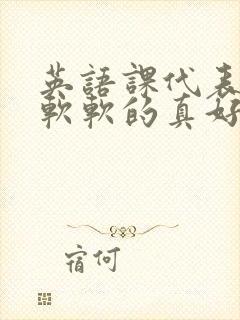 英語課代表
軟軟的真好
宿何